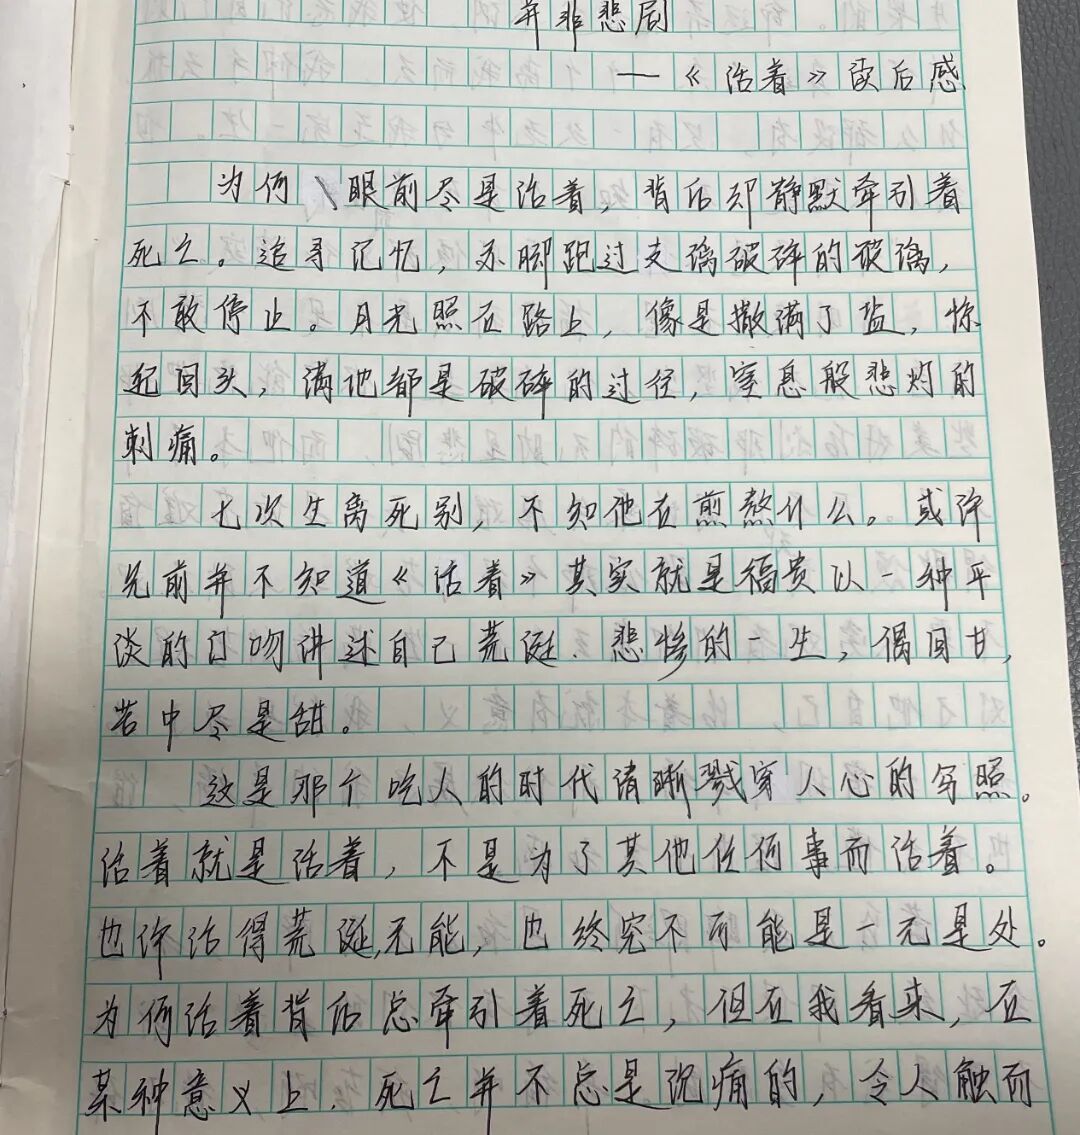 并非悲剧
—《活着》读后感
为何眼前尽是活着，背后却静默牵引着
死亡。追寻记忆，赤脚跑过支璃破碎的玻璃，
不敢停止。月光照在路上，像是撒满了盐，惊
起回头，满地都是破碎的过往，窒息般悲灼的
刺痛。
七次生离死别，不知他在煎熬什么。或许
先前并不知道《活着》其实就是福贵以一种平
淡的口吻讲述自己荒诞、悲惨的一生，偶回甘，
苦中尽是甜。
这是那个吃人的时代清晰戳穿人心的写照。
活着就是活着，不是为了其他任何事而活着。
也许活得荒诞，无能，也终究不可能是一无是处。
为何活着背后总牵引着死亡，但在我看来，在
某种意义上，死亡并不总是沉痛的，令人触而